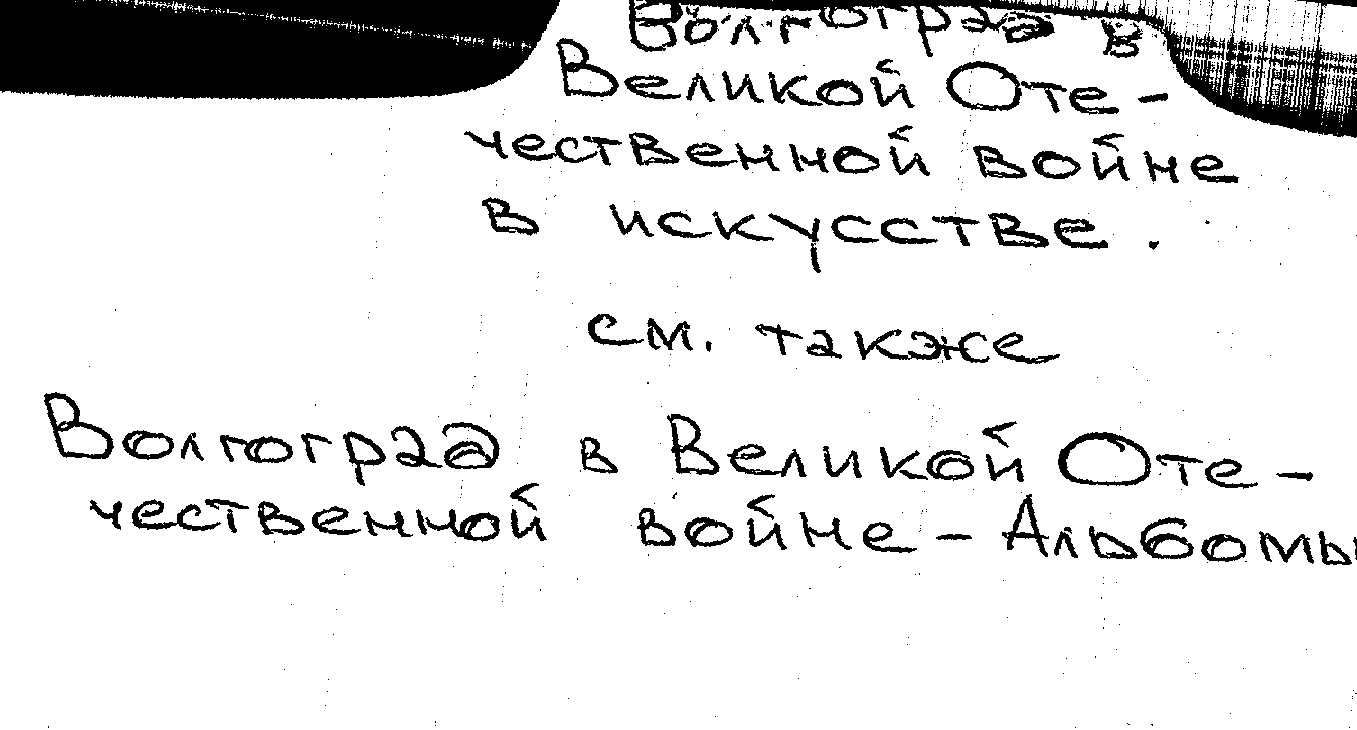 Волгоград в
Великой Оте-
чественной войне
в искусстве.
см. также
Волгоград в Великой Оте-
чественной войне - Альбомы